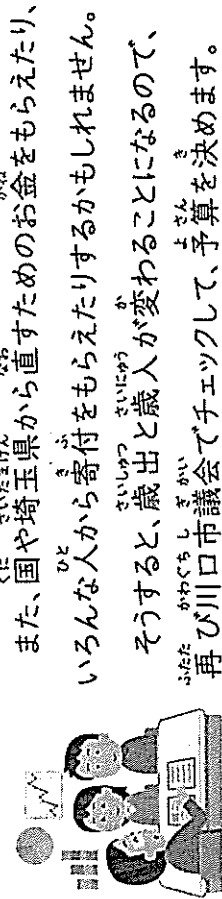 また、国や埼玉県から直すためのお金をもらえたり、
いろんな人から寄付をもらえたりするかもしれません。
そうすると、歳出と歳入が変わることになるので、
再び川口市議会でチェックして、予算を決めます。